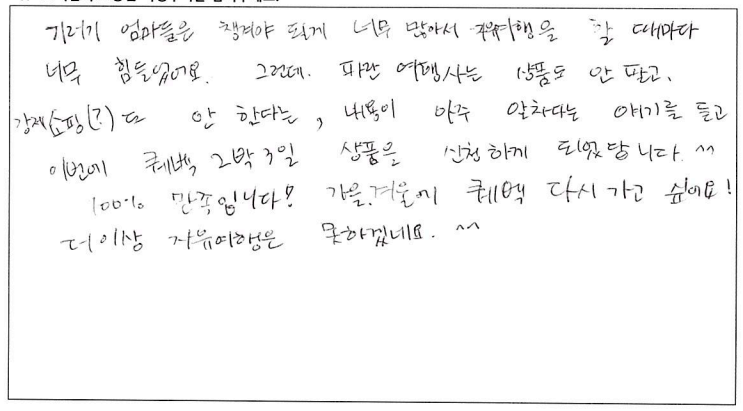 기러기 엄마들은 챙겨야 될게 너무 많아서 자유여행을 할 때마다
너무 힘들었어요. 그런데, 파란 여행사는 상품도 안 팔고,
강제쇼핑(?)도 안 한다는, 내용이 아주 알차다는 얘기를 듣고
이번에 퀘벡 2박3일 상품을 신청하게 되었답니다. ^^
100% 만족입니다! 가을,겨울에 퀘벡 다시 가고 싶어요!
더이상 자유여행은 못하겠네요. ^^